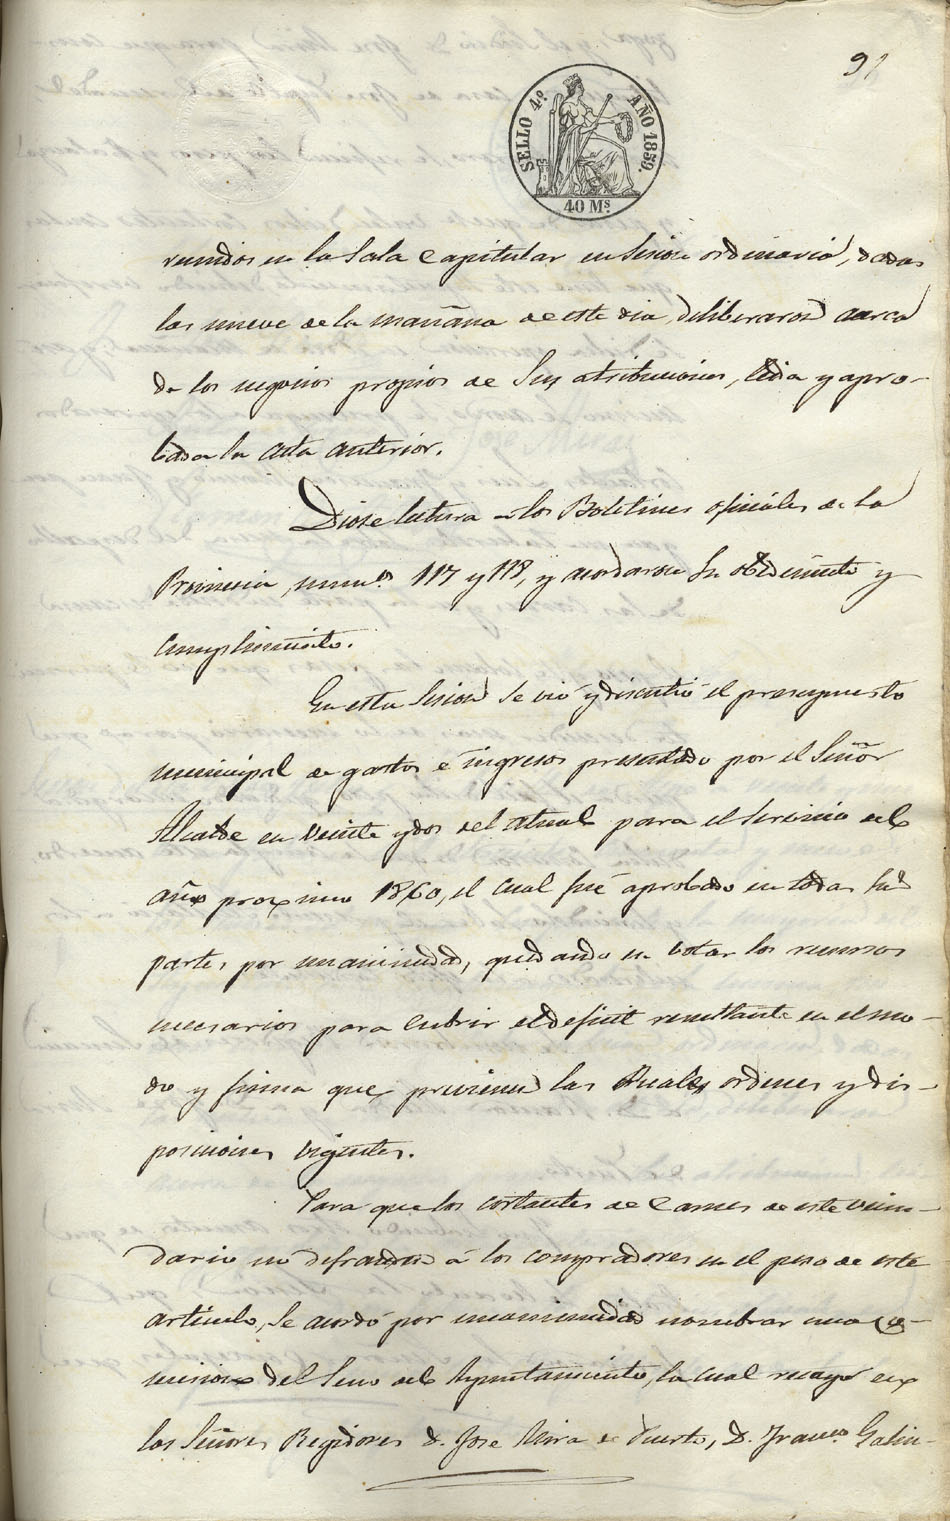 SELLO 4.º AÑO 1859.
40 Ms.
reunidos en la Sala Capitular en Sesion ordinaria, dadas
las nueve de la mañana de este dia, deliberaron acerca
de los negocios propios de sus atribuciones, leida y apro-
bada la acta anterior.
Diose lectura a los Boletines oficiales de la
Provincia, numos 117 y 118, y acordaron su obedimiento y
cumplimiento.
En esta Sesion se vió y discutió el presupuesto
municipal de gastos é ingresos presentado por el Señor
Alcalde en veinte y dos del actual para el servicio del
año proximo 1860, el cual fué aprobado en todas sus
partes por unanimidad, quedando en votar los recursos
necesarios para cubrir el deficit resultante en el mo-
do y forma que previenen las Reales ordenes y dis-
posiciones vigentes.
Para que los cortantes de Carnes de este vecin-
dario no defrauden á los compradores en el peso de este
articulo, se acordó por unanimidad nombrar una Co-
mision del Seno del Ayuntamiento, la cual recayó en
los Señores Regidores D. Jose Mira de Puerto, D. Franco Galin-